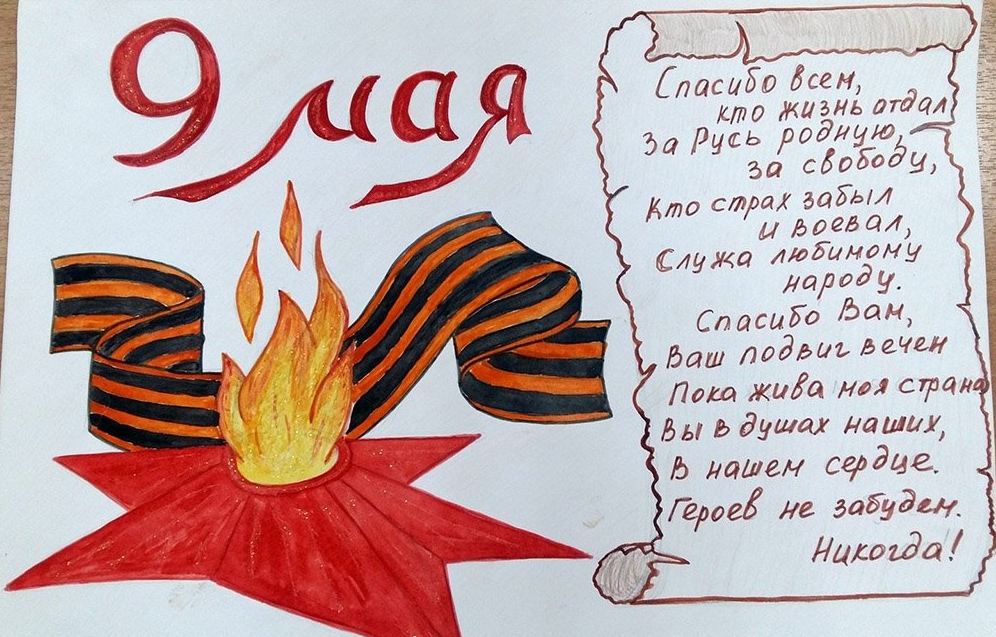 9 мая
Спасибо всем,
кто жизнь отдал
За Русь родную,
за свободу,
Кто страх забыл
и воевал,
Служа любимому
народу.
Спасибо Вам,
Ваш подвиг вечен
Пока жива моя страна
Вы в душах наших,
В нашем сердце.
Героев не забудем.
Никогда!